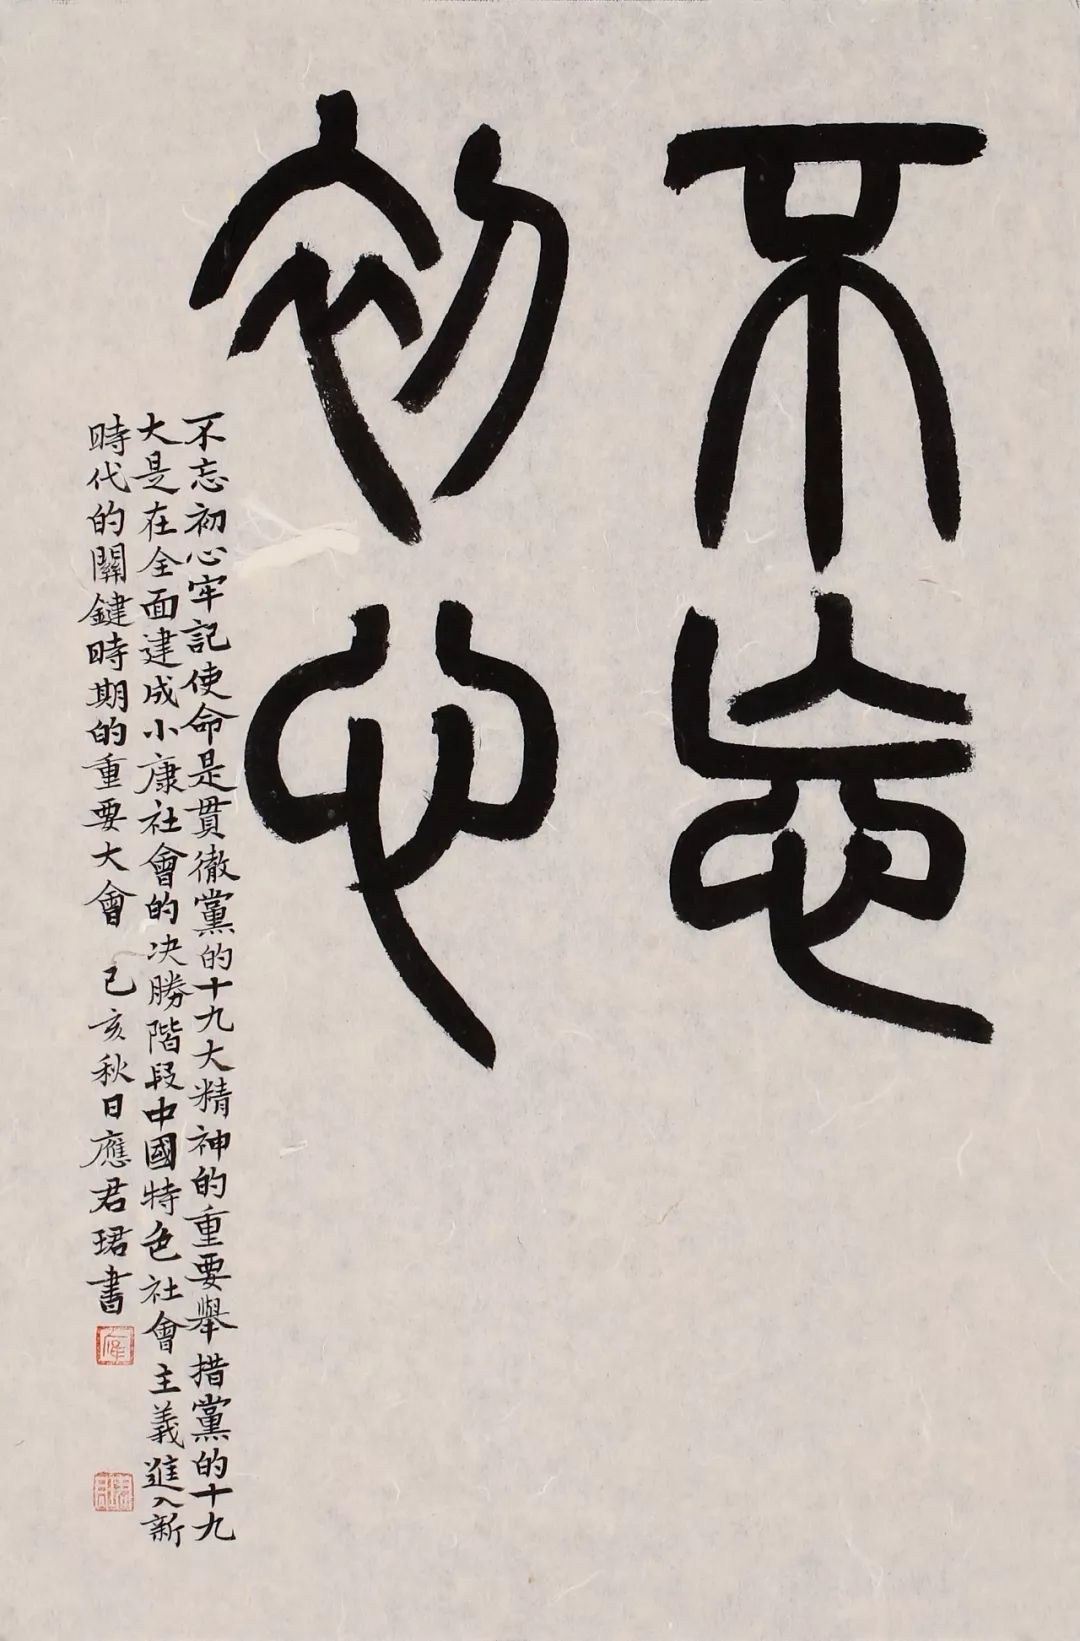 不忘
初心
不忘初心牢記使命是貫徹黨的十九大精神的重要舉措黨的十九
大是在全面建成小康社會的决勝階段中國特色社會主義進入新
時代的關鍵時期的重要大會 己亥秋日應君珺書